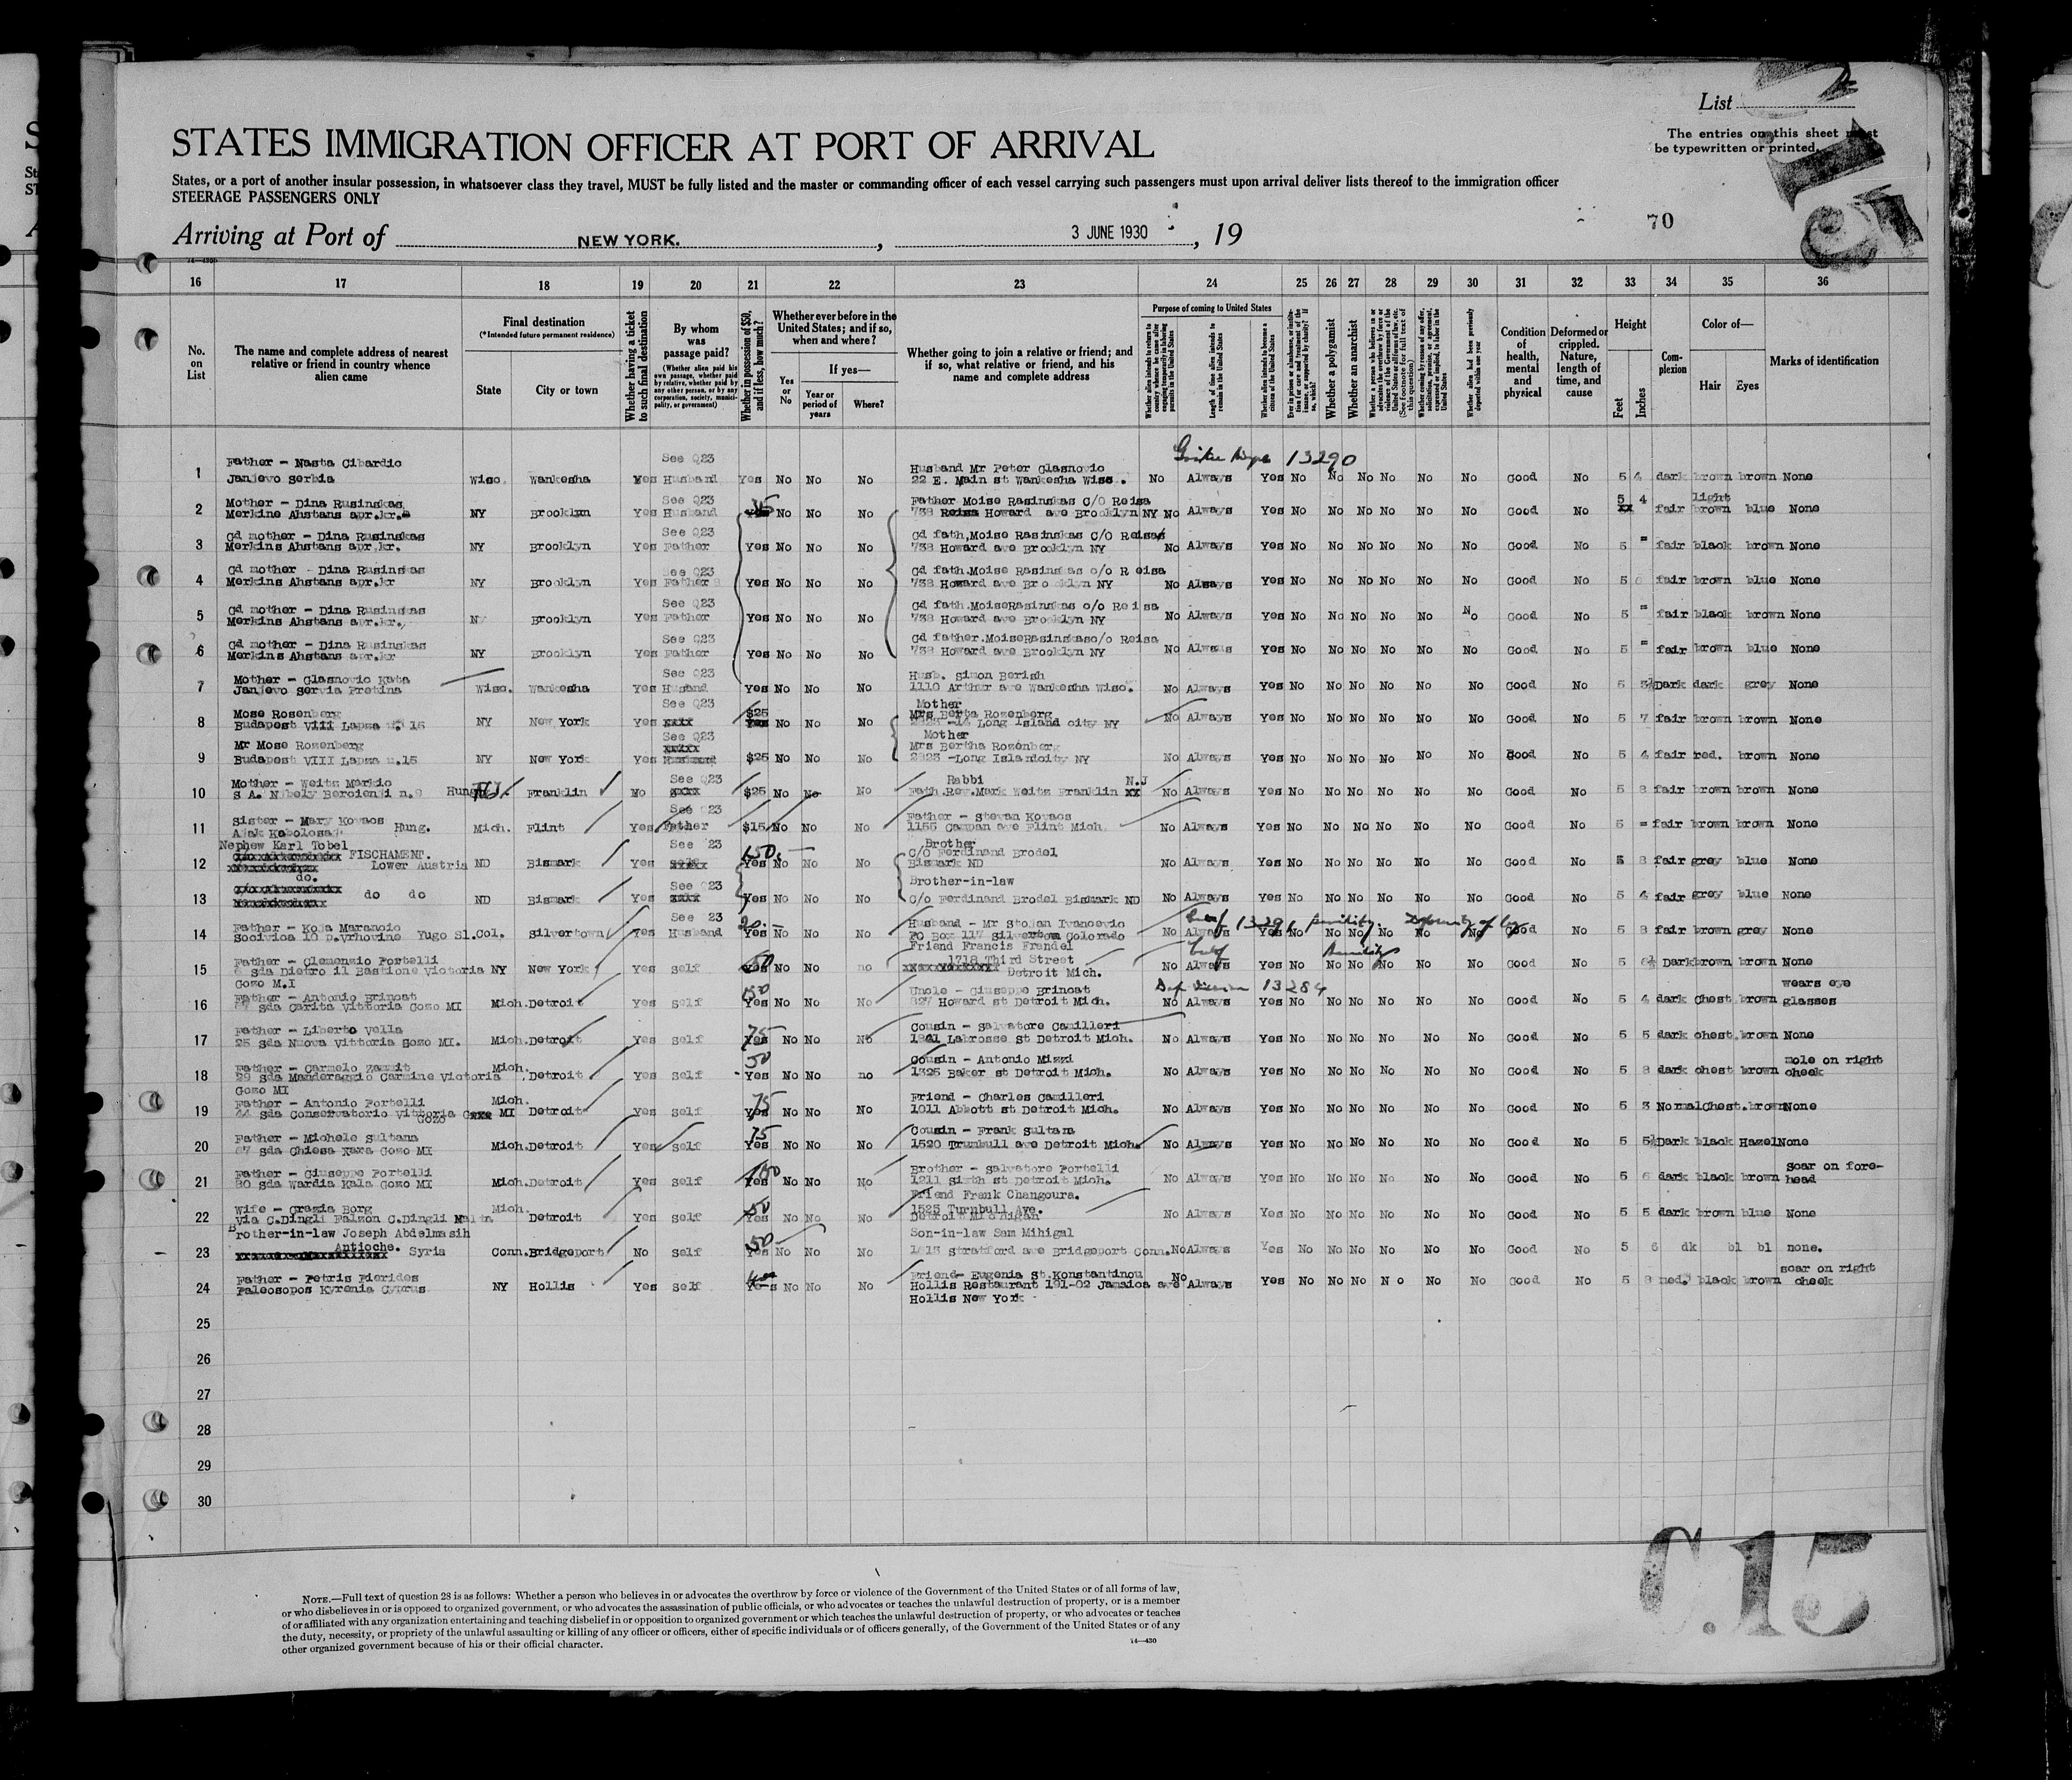 List
The entries on this sheet must
be typewritten or printed.
STATES IMMIGRATION OFFICER AT PORT OF ARRIVAL
States, or a port of another insular possession, in whatsoever class they travel, MUST be fully listed and the master or commanding officer of each vessel carrying such passengers must upon arrival deliver lists thereof to the immigration officer
STEERAGE PASSENGERS ONLY
70
Arriving at Port of NEW YORK. , 3 JUNE 1930 , 19
16 17 18 19 20 21 22 23 24 25 26 27 28 29 30 31 32 33 34 35 36
No. on List
The name and complete address of nearest relative or friend in country whence alien came
Final destination
(*Intended future permanent residence)
State
City or town
Whether having a ticket to such final destination
By whom was passage paid?
(Whether alien paid his own passage, whether paid by relative, whether paid by any other person, or by any corporation, society, municipality, or government)
Whether in possession of $50, and if less, how much?
Whether ever before in the United States; and if so, when and where?
Yes or No
If yes—
Year or period of years
Where?
Whether going to join a relative or friend; and if so, what relative or friend, and his name and complete address
Purpose of coming to United States
Length of time alien intends to remain in the United States
Whether alien intends to become a citizen of the United States
Whether a polygamist
Whether an anarchist
Condition of health, mental and physical
Deformed or crippled. Nature, length of time, and cause
Height
Feet
Inches
Complexion
Color of—
Hair
Eyes
Marks of identification
13290
1 Father - Nasta Cibardic See Q23 Husband Mr Peter Glasnovic
Janjevo Serbia Wisc. Wankesha Yes Husband Yes No No No 22 E. Main st Wankesha Wisc. No Always Yes No No No No No No Good No 5 4 dark brown brown None
2 Mother - Dina Rusinskas See Q23 Father Moise Rasinskas C/O Reisa light
Merkine Ahstans apr.kr. NY Brooklyn Yes Husband No No No 738 Howard ave Brooklyn NY No Always Yes No No No No No No Good No 5 4 fair brown blue None
3 Gd mother - Dina Rusinskas See Q23 Gd fath,Moise Rasinskas C/O Reisa
Merkins Ahstans apr.kr. NY Brooklyn Yes Father Yes No No No 738 Howard ave Brooklyn NY No Always Yes No No No No No No Good No 5 fair black brown None
4 Gd mother - Dina Rusinskas See Q23 Gd fath.Moise Rasinskas c/o Reisa
Merkins Ahstans apr.kr NY Brooklyn Yes Father Yes No No No 738 Howard ave Brooklyn NY No Always Yes No No No No No No Good No 5 fair brown blue None
5 Gd mother - Dina Rusinskas See Q23 Gd fath.MoiseRasinskas c/o Reisa
Merkins Ahstans apr.kr. NY Brooklyn Yes Father Yes No No No 738 Howard ave Brooklyn NY No Always Yes No No No No No No Good No 5 fair black brown None
6 Gd mother - Dina Rusinskas See Q23 Gd father.MoiseRasinskasc/o Reisa
Merkins Ahstans apr.kr NY Brooklyn Yes Father Yes No No No 738 Howard ave Brooklyn NY No Always Yes No No No No No No Good No 5 fair brown blue None
7 Mother - Glasnovic Kata See Q23 Husb. Simon Berish
Janjevo servia Pretina Wisc. Wankesha Yes Husband Yes No No No 1110 Arthur ave Wankesha Wisc. No Always Yes No No No No No No Good No 5 Dark dark grey None
8 Mose Rosenberg See Q23 $25 Mother Mrs Berta Rozenberg
Budapest VIII Lapsa u. 15 NY New York Yes No No No Long Island city NY No Always Yes No No No No No No Good No 5 7 fair brown brown None
9 Mr Mose Rozenberg See Q23 Mother Mrs Bertha Rozenberg
Budapest VIII Lapsa u.15 NY New York Yes $25 No No No Long Islandcity NY No Always Yes No No No No No No Good No 5 4 fair red. brown None
10 Mother - Weitz Markio See Q23 Rabbi N.J
Hung Franklin No $25 No No No Fath.Rev.Mark Weitz Franklin No Always Yes No No No No No No Good No 5 8 fair brown brown None
11 Sister - Mary Kovacs See Q23 Father - Stevan Kovacs
Ajak Kabolosag Hung. Mich. Flint Yes Father $15 No No No 1155 Campan ave Flint Mich. No Always Yes No No No No No No Good No 5 fair brown brown None
12 Nephew Karl Tobel FISCHAMENT. See 23 150.- Brother C/O Ferdinand Brodel
Lower Austria ND Bismark Yes Yes No No No Bismark ND No Always Yes No No No No No No Good No 5 8 fair grey blue None
13 do. do do See Q23 Brother-in-law
ND Bismark Yes Yes No No No C/o Ferdinand Brodel Bismark ND No Always Yes No No No No No No Good No 5 4 fair grey blue None
14 Father - Koja Marancic See 23 20.- Husband - Mr Stojan Ivancevic 13291
Socivica 10 p.Vrhovine Yugo Sl. Col. Silvertown Yes Husband Yes No No No PO Box 117 Silvertown Colorado No Always Yes No No No No No No Good No 5 8 fair brown grey None
15 Father - Clemenzio Portelli 50 Friend Francis Frendel 1718 Third Street
sda Dietro il Bastione Victoria Gozo M.I NY New York Yes self Yes No No no Detroit Mich. No Always Yes No No No No No No Good No 5 Dark brown brown None
16 Father - Antonio Brincat 150 Uncle - Giuseppe Brincat 13284 wears eye
sda Carita Vittoria Gozo MI Mich. Detroit Yes self Yes No No No 827 Howard st Detroit Mich. No Always Yes No No No No No No Good No 5 4 dark Chest brown glasses
17 Father - Liberto Vella 75 Cousin - Salvatore Camilleri
25 sda Nuova Vittoria Gozo MI. Mich. Detroit Yes self Yes No No No Labrosse st Detroit Mich. No Always Yes No No No No No No Good No 5 5 dark chest.brown None
18 Father - Carmelo Zammit Mich. 50 Cousin - Antonio Mizzi mole on right
29 sda Manderaggio Carmine Victoria Gozo MI Detroit Yes self Yes No No no 1325 Baker st Detroit Mich. No Always Yes No No No No No No Good No 5 8 dark chest brown cheek
19 Father - Antonio Portelli Mich. 75 Friend - Charles Camilleri
44 sda Conservatorio Vittoria Gozo MI Detroit Yes self Yes No No No 1011 Abbott st Detroit Mich. No Always Yes No No No No No No Good No 5 3 Normal Chest.brown None
20 Father - Michele Sultana 75 Cousin - Frank Sultana
67 sda Chiesa Xara Gozo MI Mich. Detroit Yes self Yes No No No 1520 Trumbull ave Detroit Mich. No Always Yes No No No No No No Good No 5 5½ Dark black Hazel None
21 Father - Giuseppe Portelli 100 Brother - Salvatore Portelli scar on fore-
80 sda Wardia Kala Gozo MI Mich. Detroit Yes self Yes No No No 1211 Sixth st Detroit Mich. No Always Yes No No No No No No Good No 5 6 dark black brown head
22 Wife - Grazia Borg Mich. 50 Friend Frank Changoura. 1523 Turnbull Ave.
Via C.Dingli Falzon C.Dingli Malta Detroit Yes self Yes No No No Detroit Michigan No Always Yes No No No No No No Good No 5 5 dark brown blue None
23 Brother-in-law Joseph Abdelmasih 50 Son-in-law Sam Mihigal
Antioche. Syria Conn. Bridgeport No self Yes No No No Stratford ave Bridgeport Conn. No Always Yes No No No No No No Good No 5 6 dk bl bl none.
24 Father - Petris Pierides Friend- Eugenia St.Konstantinou scar on right
Paleosopos Kyrenia Cyprus NY Hollis Yes Self No No No Hollis Restaurant 191-02 Jamaica ave No Always Yes No No No No No No Good No 5 8 med. black brown cheek
Hollis New York
25
26
27
28
29
30
NOTE.—Full text of question 28 is as follows: Whether a person who believes in or advocates the overthrow by force or violence of the Government of the United States or of all forms of law,
or who disbelieves in or is opposed to organized government, or who advocates the assassination of public officials, or who advocates or teaches the unlawful destruction of property, or is a member
of or affiliated with any organization entertaining and teaching disbelief in or opposition to organized government or which teaches the unlawful destruction of property, or who advocates or teaches
the duty, necessity, or propriety of the unlawful assaulting or killing of any officer or officers, either of specific individuals or of officers generally, of the Government of the United States or of any
other organized government because of his or their official character.
14—430
C.15